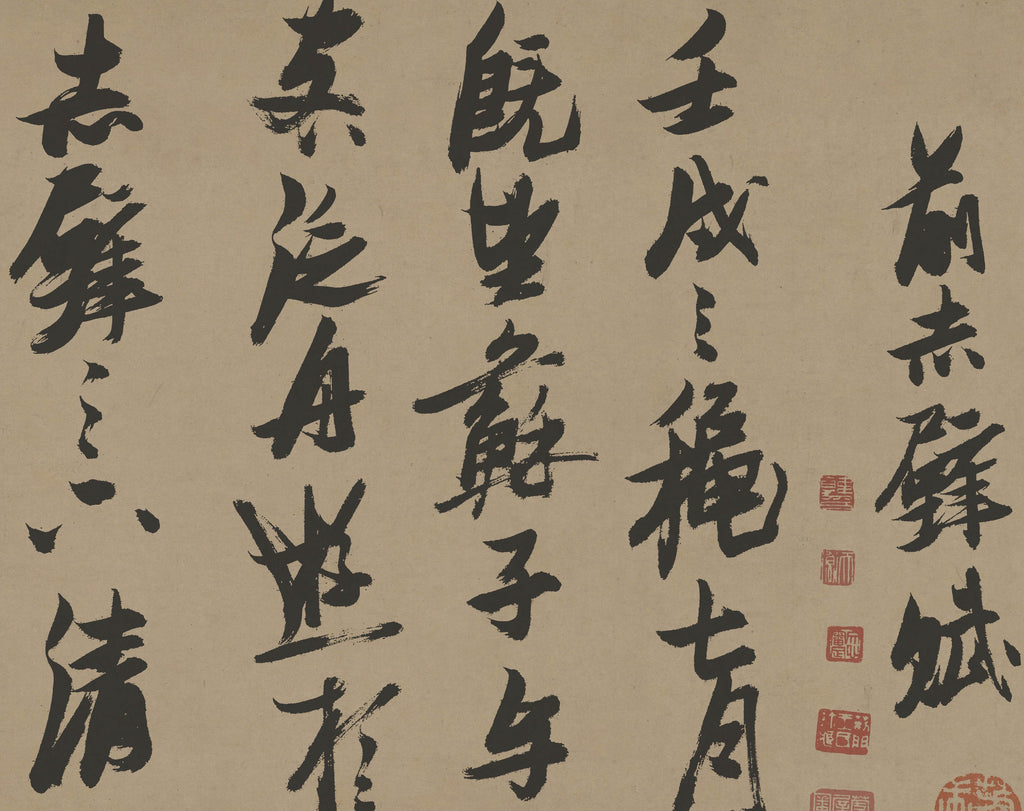 前赤壁賦
壬戌之穐七月
既望蘇子与
客泛舟遊於
赤壁之下清